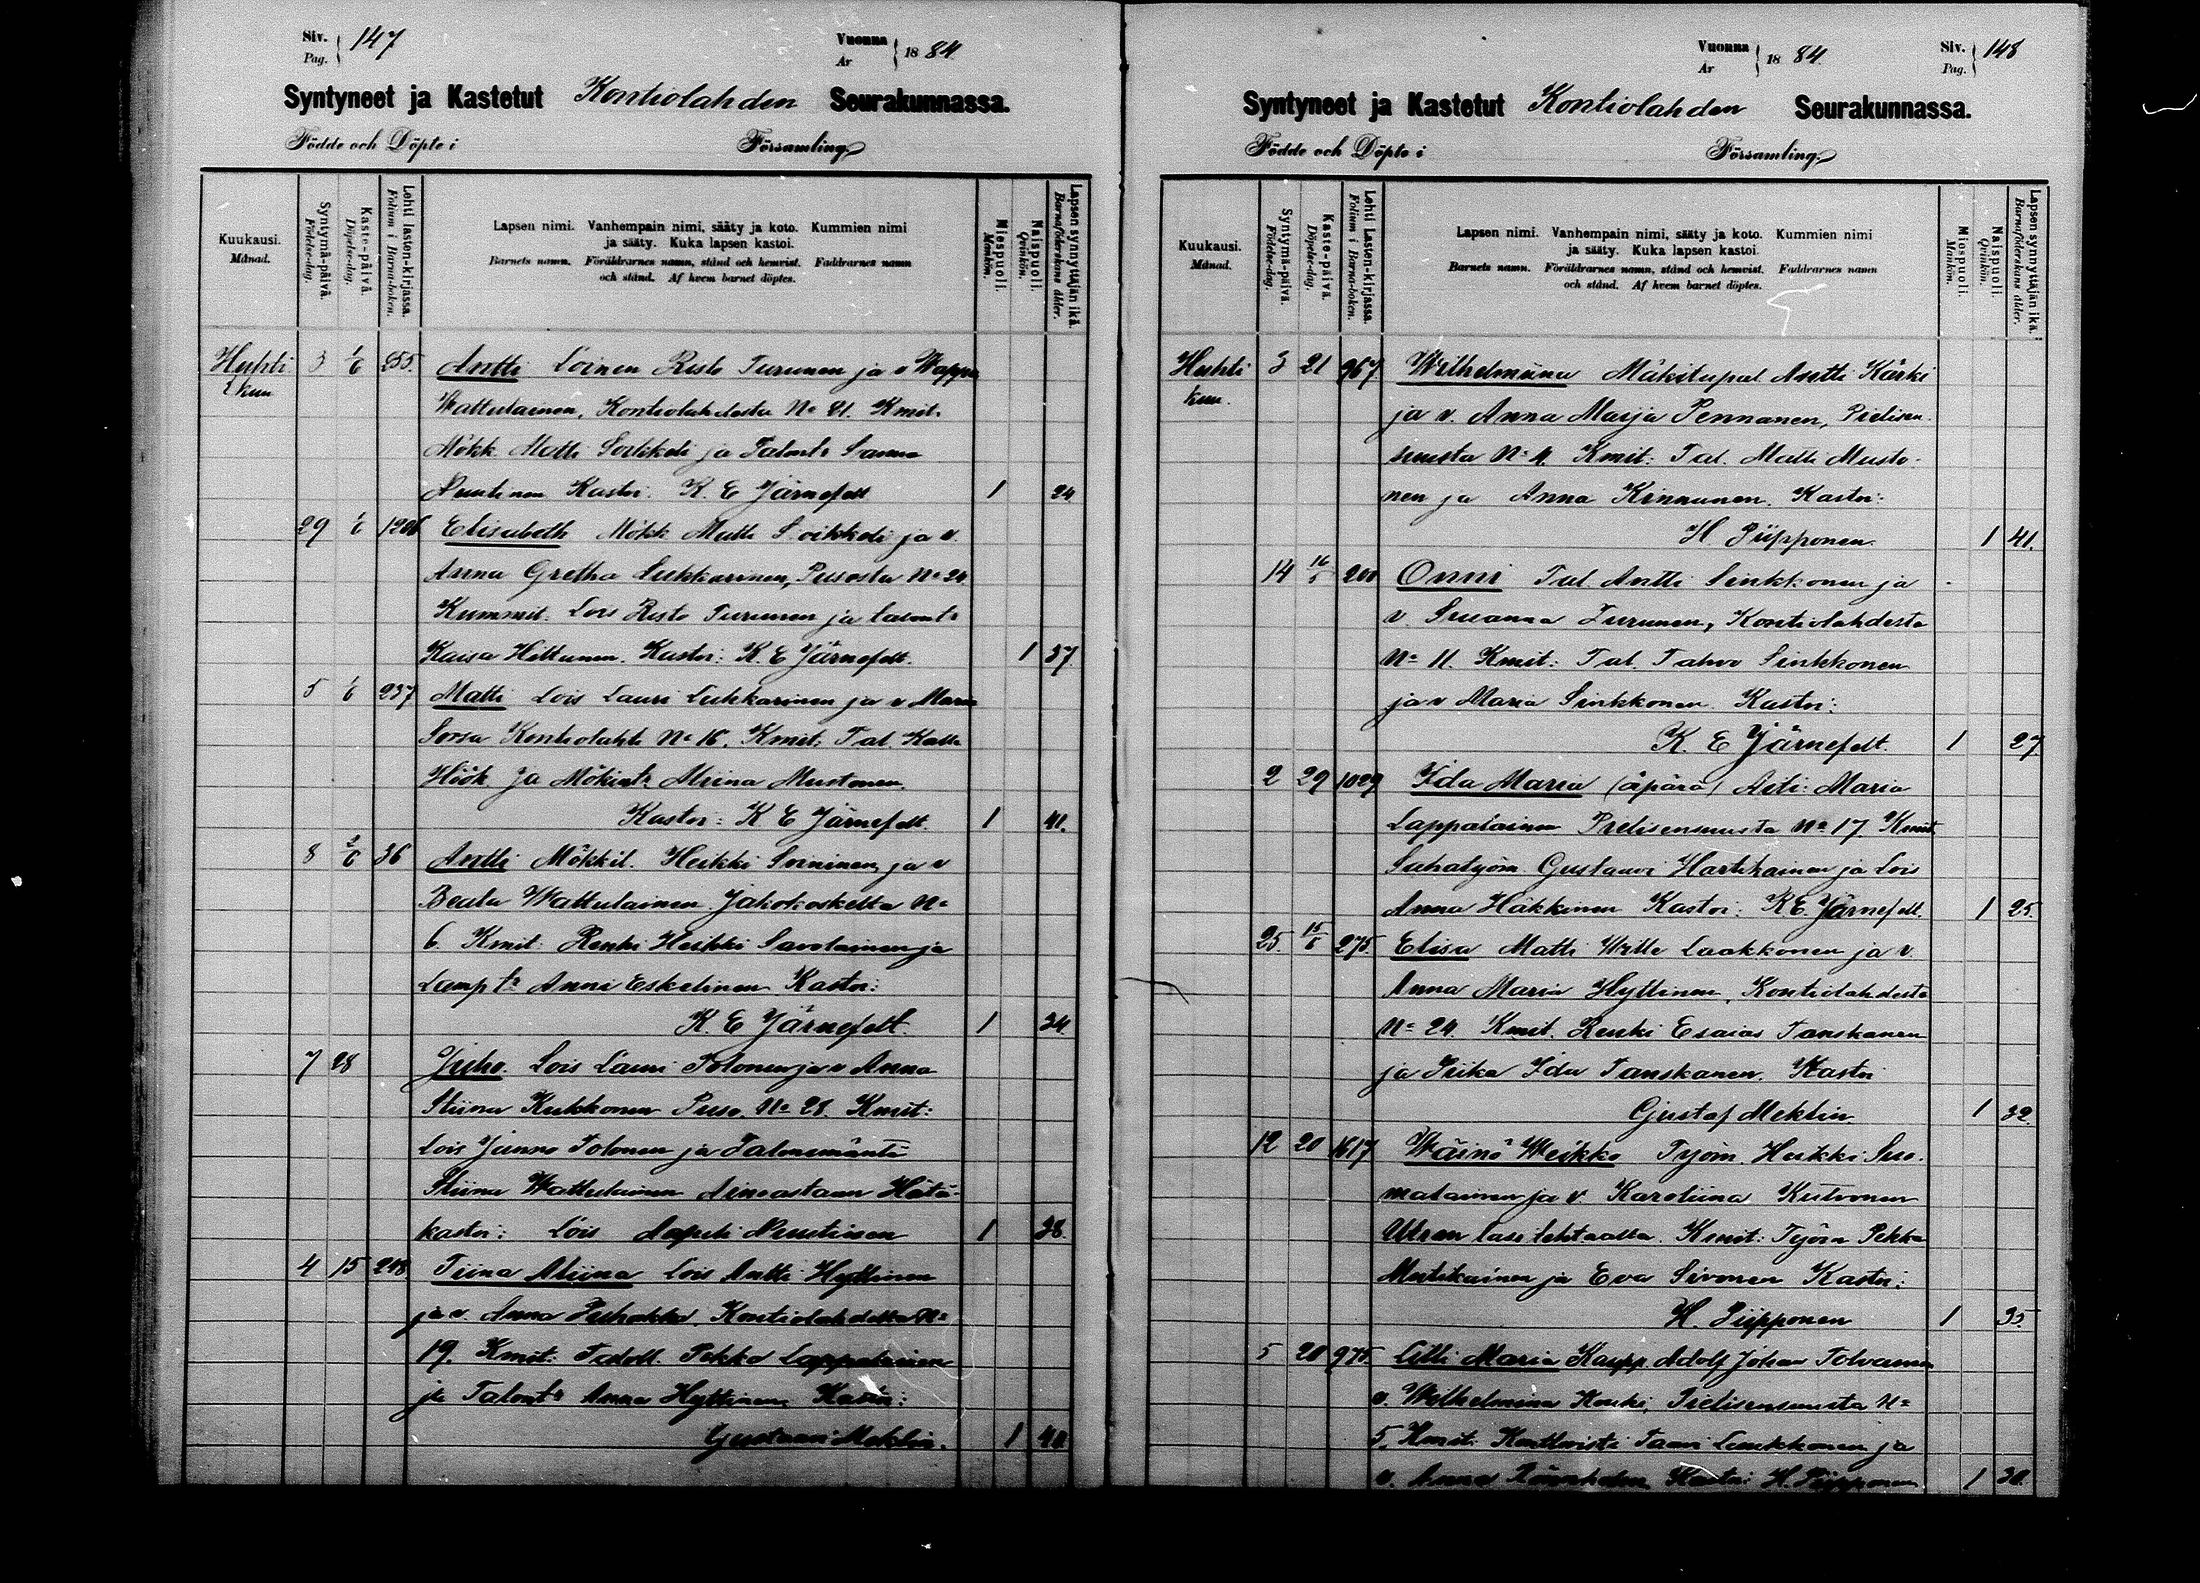 Siv. Pag. 147 Vuonna Ar 18 84.
Syntyneet ja Kastetut Kontiolahden Seurakunnassa.
Födde och Döpte i Församling
Kuukausi. Månad.
Syntymä-päivä. Födelse-dag.
Kaste-päivä. Döpelse-dag.
Lehti lasten-kirjassa. Folium i Barna-boken.
Lapsen nimi. Vanhempain nimi, sääty ja koto. Kummien nimi
ja sääty. Kuka lapsen kastoi.
Barnets namn. Föräldrarnes namn, stånd och hemvist. Faddrarnes namn
och stånd. Af hvem barnet döptes.
Miespuoli. Mankön.
Naispuoli. Qvinkön.
Lapsen synnyttäjän ikä. Barnaföderskans ålder.
Huhti 3 1/6 255. Antti Loinen Risto Turunen ja v Wappu
kuu Wattulainen, Kontiolahdesta No 21. Kmit.
Mökk. Matti Soikkeli ja Talont:
Nuutinen Kastoi: K. E Järnefelt 1 24
29 1/6 Elisabeth Mökk Matti Soikkeli ja v.
Anna Gretha Lukkarinen, Pusosta No 24
Kummit. Lois Risto Turunen ja talont:
Kaisa Hiltunen. Kastoi: K. E Järnefelt. 1 37
5 1/6 237 Matti Lois Lauri Lukkarinen ja v Maria
Sorsa Kontiolahti No 16. Kmit: Tal. Kalle
Höök ja Mökint: Miina Mustonen.
Kastoi: K. E Järnefelt. 1 41.
8 2/6 36 Antti Mökkil. Heikki Soininen ja v
Beata Wattulainen Jakokoskelta No
6. Kmit: Renki Heikki Savolainen ja
Anni Eskelinen Kastoi:
K. E Järnefelt 1 34
7 28 Juho. Lois Lauri Tolonen ja v Anna
Stiina Kukkonen Puso. No 28. Kmit:
Lois Junno Tolonen ja Talonemäntä
Stiina Wattulainen Hätä-
kastoi: Lois Nuutinen 1 38.
4 15 248 Tiina Miina Lois Antti Hyttinen
ja v. Anna Puhakka, Kontiolahdelta No
19. Kmit: Pekka Lappalainen
ja Talont: Anna Hyttinen Kastoi:
Gustavi Meklin. 1 40
Vuonna Ar 18 84. Siv. Pag. 148
Syntyneet ja Kastetut Kontiolahden Seurakunnassa.
Födde och Döpte i Församling
Kuukausi. Månad.
Syntymä-päivä. Födelse-dag.
Kaste-päivä. Döpelse-dag.
Lehti Lasten-kirjassa. Folium i Barna-boken.
Lapsen nimi. Vanhempain nimi, sääty ja koto. Kummien nimi
ja sääty. Kuka lapsen kastoi.
Barnets namn. Föräldrarnes namn, stånd och hemvist. Faddrarnes namn
och stånd. Af hvem barnet döptes.
Miespuoli. Mankön.
Naispuoli. Qvinkön.
Lapsen synnyttäjän ikä. Barnaföderskans ålder.
Huhti 3 21 967 Wilhelmiina Mäkitupal Antti Kärki
kuu. ja v. Anna Marja Pennanen, Pielisen
suusta No 4. Kmit: Tal. Matti Musto-
nen ja Anna Kinnunen. Kastoi:
H. Piipponen. 1 41.
14 16/5 200 Onni Tal. Antti Sinkkonen ja
v Susanna Turunen, Kontiolahdesta
No 11. Kmit: Tal. Tahvo Sinkkonen
ja v Maria Sinkkonen. Kastoi:
K. E Järnefelt. 1 27
2 29 1029 Ida Maria (äpärä) Äiti: Maria
Lappalainen Pielisensuusta No 17. Kmit
Sahatyöm Gustaavi Hartikainen ja Lois
Anna Häkkinen Kastoi: K E. Järnefelt. 1 25.
25. 15/6 275. Elisa Matti Wille Laakkonen ja v.
Anna Maria Hyttinen, Kontiolahdesta
No 24. Kmit. Renki Esaias Tanskanen
ja Piika Ida Tanskanen. Kastoi
Gustaf Meklin. 1 32
12 20 1617 Wäinö Weikko Työm. Heikki Suo-
malainen ja v Karoliina Kutvonen
Utran lasitehtaalta. Kmit: Työm Pekka
Mutikainen ja Eva Sivonen Kastoi:
H. Piipponen 1 35.
5 20 975. Lilli Maria Kaupp. Adolf Johan Tolvanen
v. Wilhelmina Pielisensuusta No
5. Kmit: Konttoristi Laukkanen ja
v. Anna Kastoi: H. Piipponen 1 30.